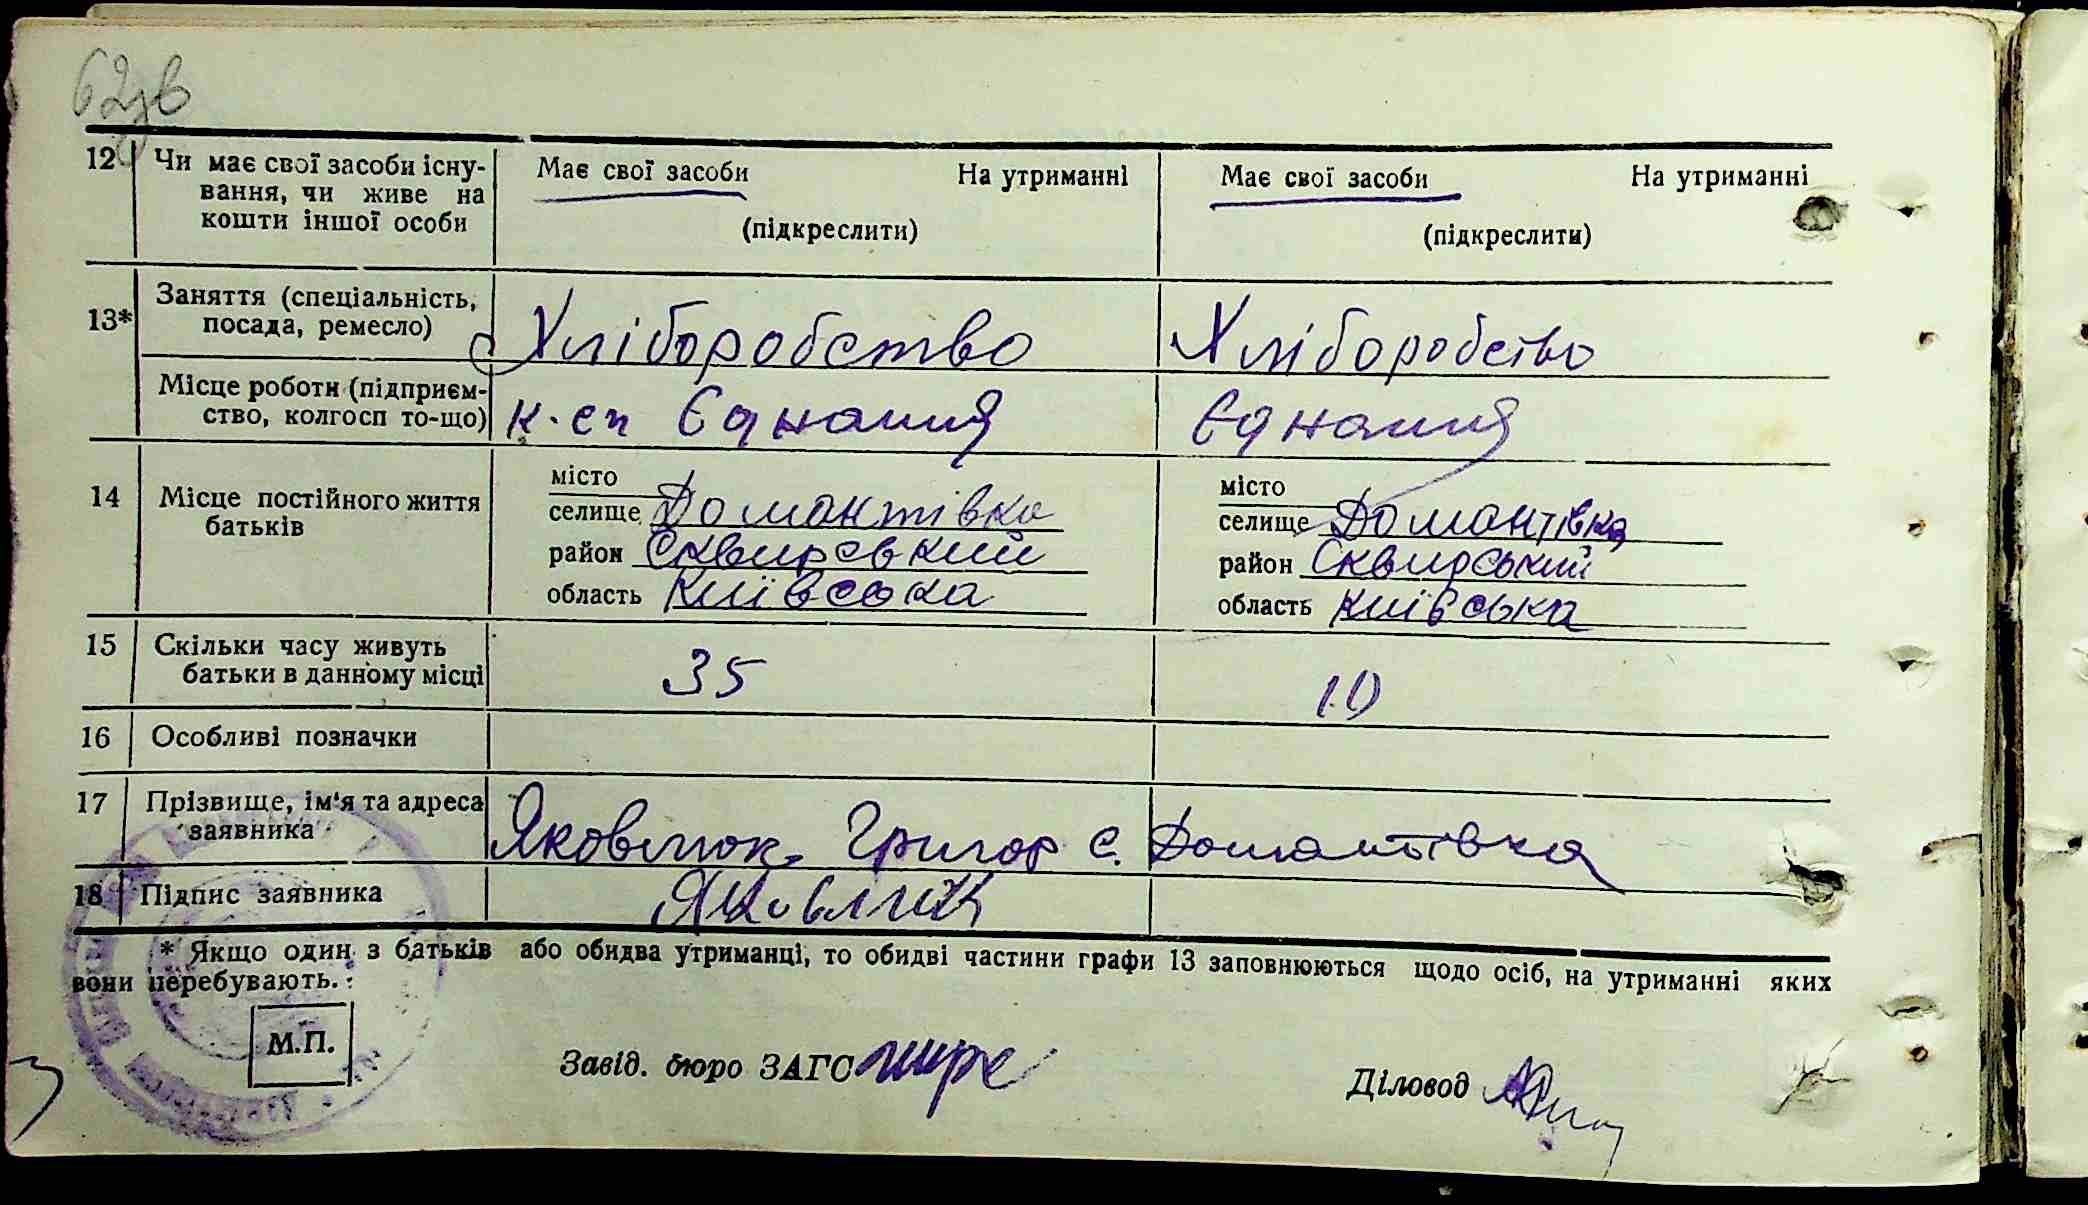 62зв
12 Чи має свої засоби існу- Має свої засоби На утриманні Має свої засоби На утриманні
вання, чи живе на
кошти іншої особи (підкреслити) (підкреслити)
Заняття (спеціальність,
13* посада, ремесло) Хліборобство Хліборобство
Місце роботи (підприєм-
ство, колгосп то-що) к-сп Єднання Єднання
місто місто
14 Місце постійного життя селище Домантівка селище Домантівка
батьків район Сквирський район Сквирський
область Київська область Київська
15 Скільки часу живуть
батьки в данному місці 35 10
16 Особливі позначки
17 Прізвище, ім'я та адреса
заявника Яковлюк Григор с. Домантівка
18 Підпис заявника Яковлюк
* Якщо один з батьків або обидва утриманці, то обидві частини графи 13 заповнюються щодо осіб, на утриманні яких
вони перебувають.
М.П.
Завід. бюро ЗАГС
Діловод